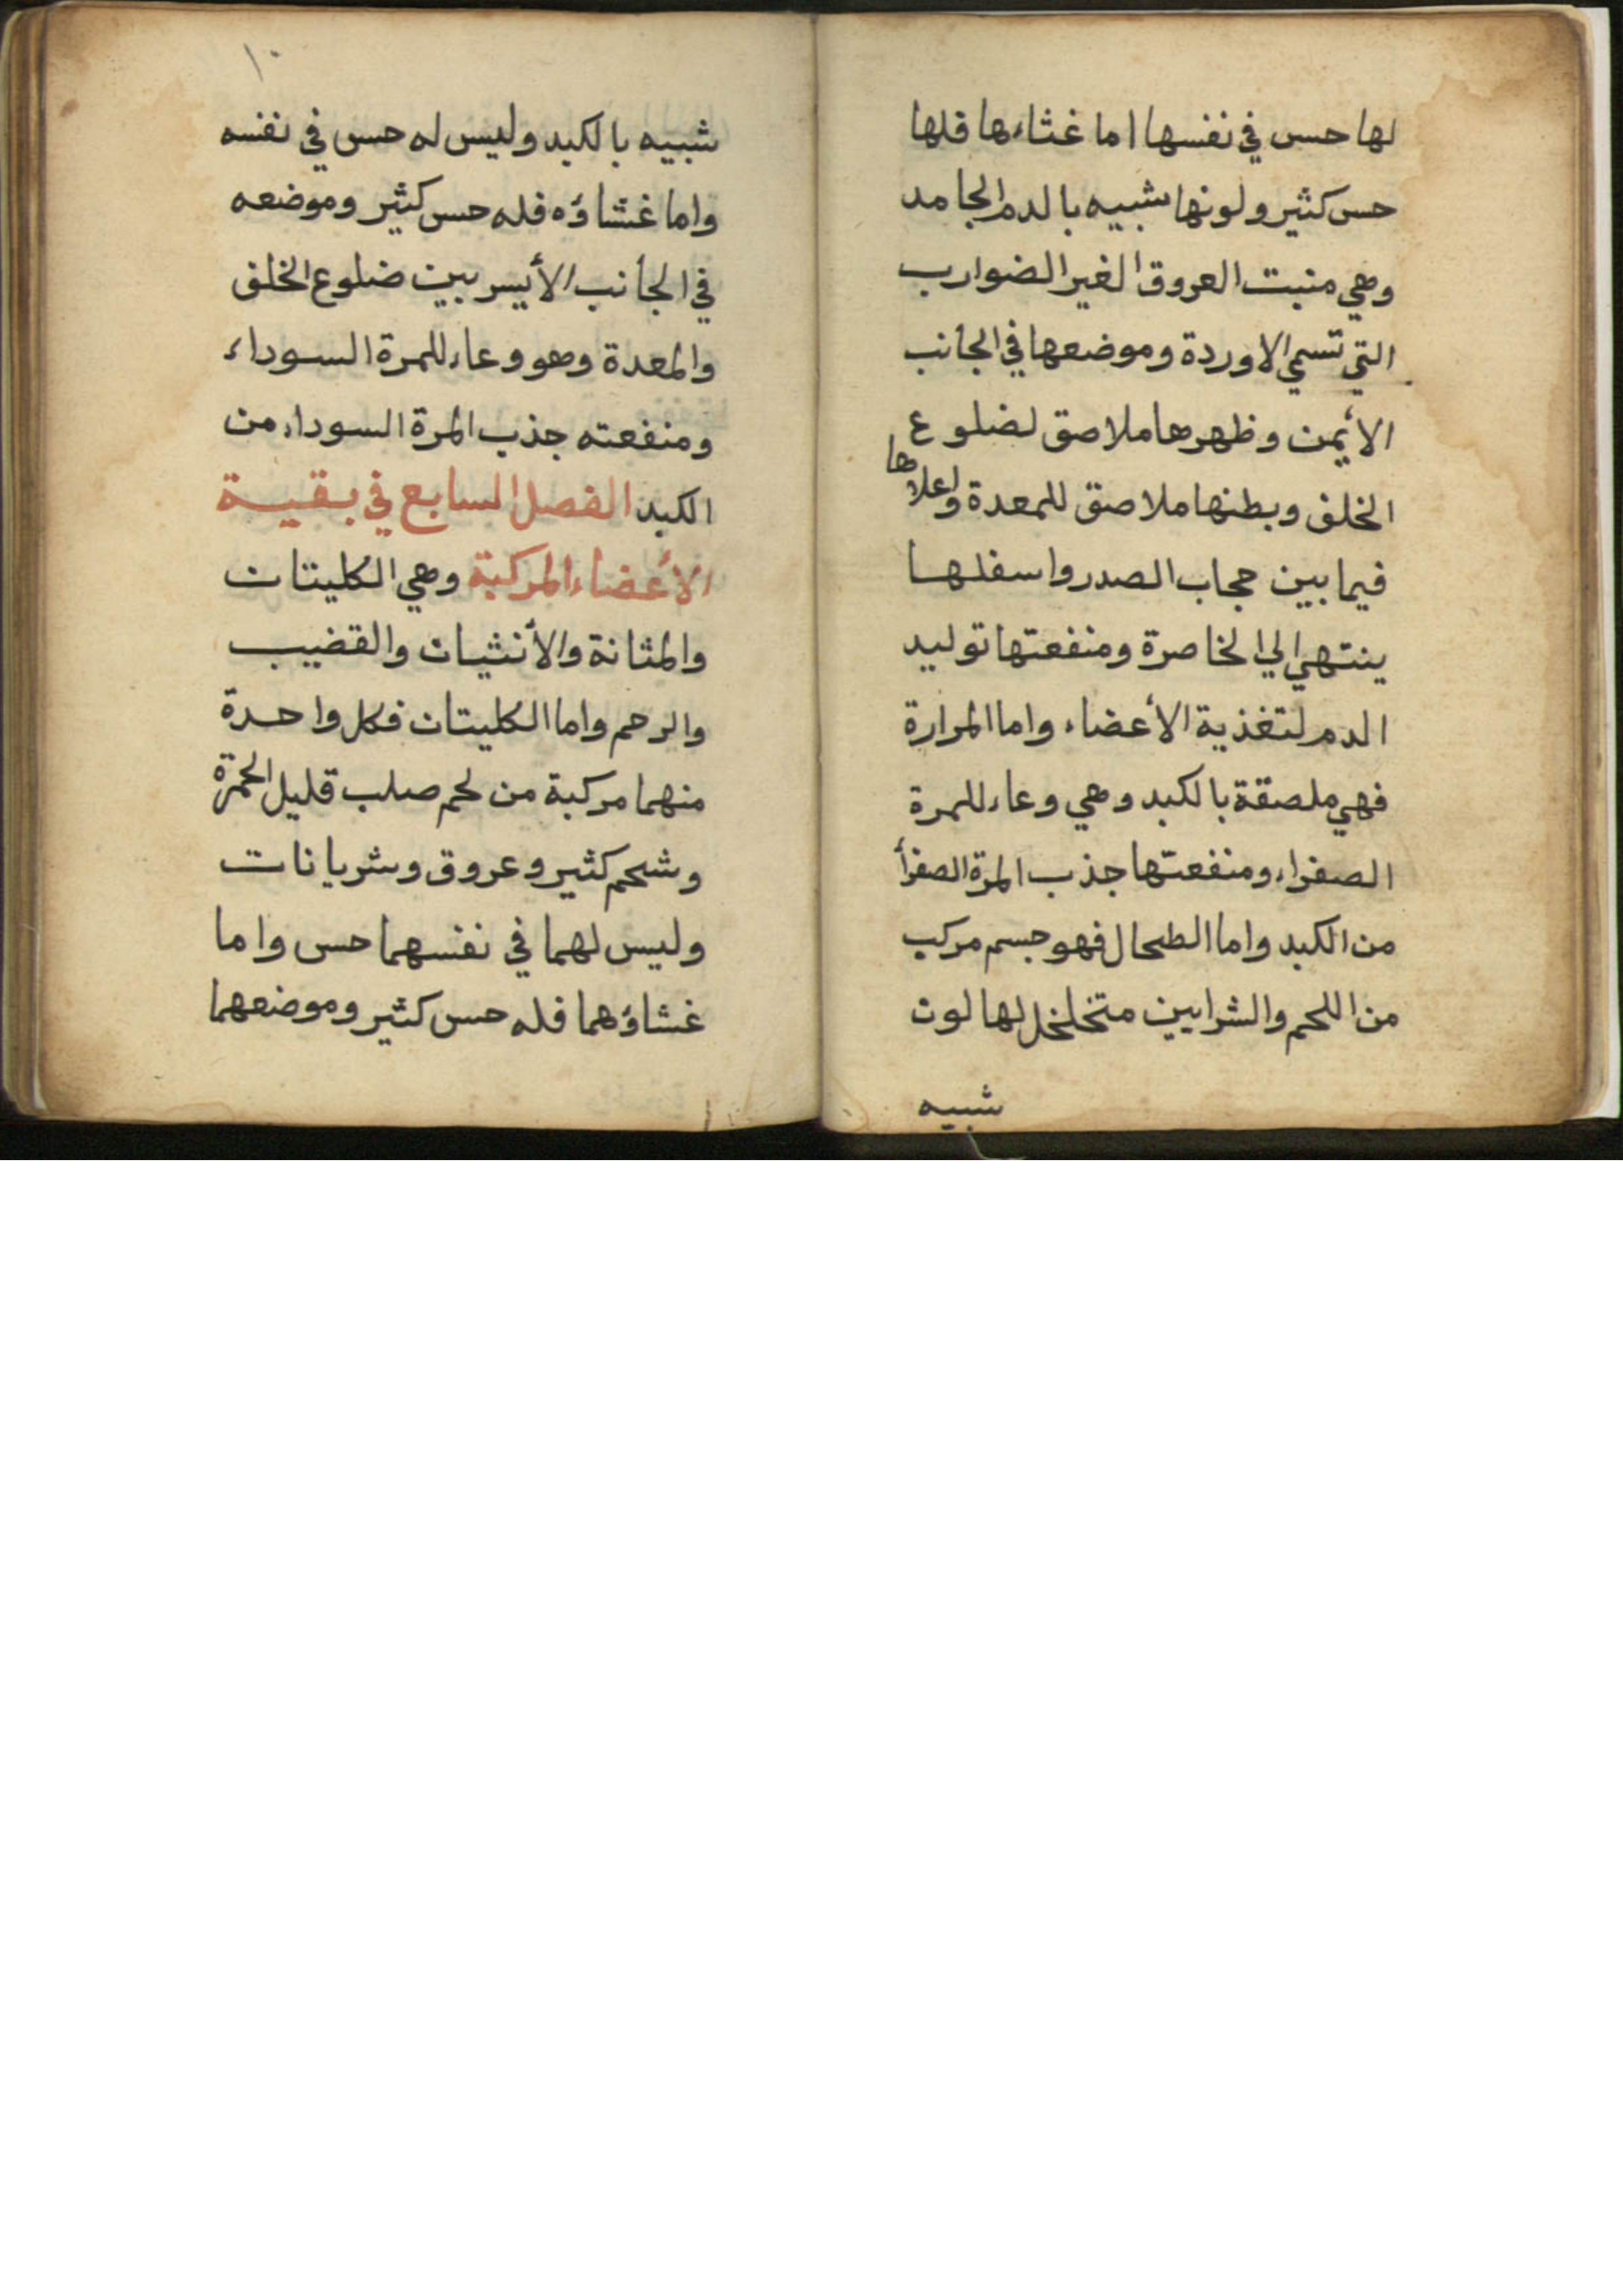 لها حس في نفسها اما غشاءها فلها
حس كثير ولونها شبيه بالدم الجامد
وهي منبت العروق الغير الضوارب
التي تسمي الاوردة وموضعها في الجانب
الأيمن وظهرها ملاصق لضلوع
الخلف وبطنها ملاصق للمعدة واعلاها
فيما بين حجاب الصدر واسفلها
ينتهي الي الخاصرة ومنفعتها توليد
الدم لتغذية الأعضاء واما المرارة
فهي ملصقة بالكبد وهي وعاء للمرة
الصفراء ومنفعتها جذب المرة الصفرأ
من الكبد واما الطحال فهو جسم مركب
من اللحم والشرايين متخلخل لها لون
شبيه
١٠
شبيه بالكبد وليس له حس في نفسه
واما غشاؤه فله حس كثير وموضعه
في الجانب الأيسر بين ضلوع الخلف
والمعدة وهو وعاء للمرة السوداء
ومنفعته جذب المرة السوداء من
الكبد الفصل السابع في بقية
الأعضاء المركبة وهي الكليتان
والمثانة والأنثيان والقضيب
والرحم واما الكليتان فكل واحدة
منهما مركبة من لحم صلب قليل الحمرة
وشحم كثير وعروق وشريانات
وليس لهما في نفسهما حس واما
غشاؤهما فله حس كثير وموضعهما